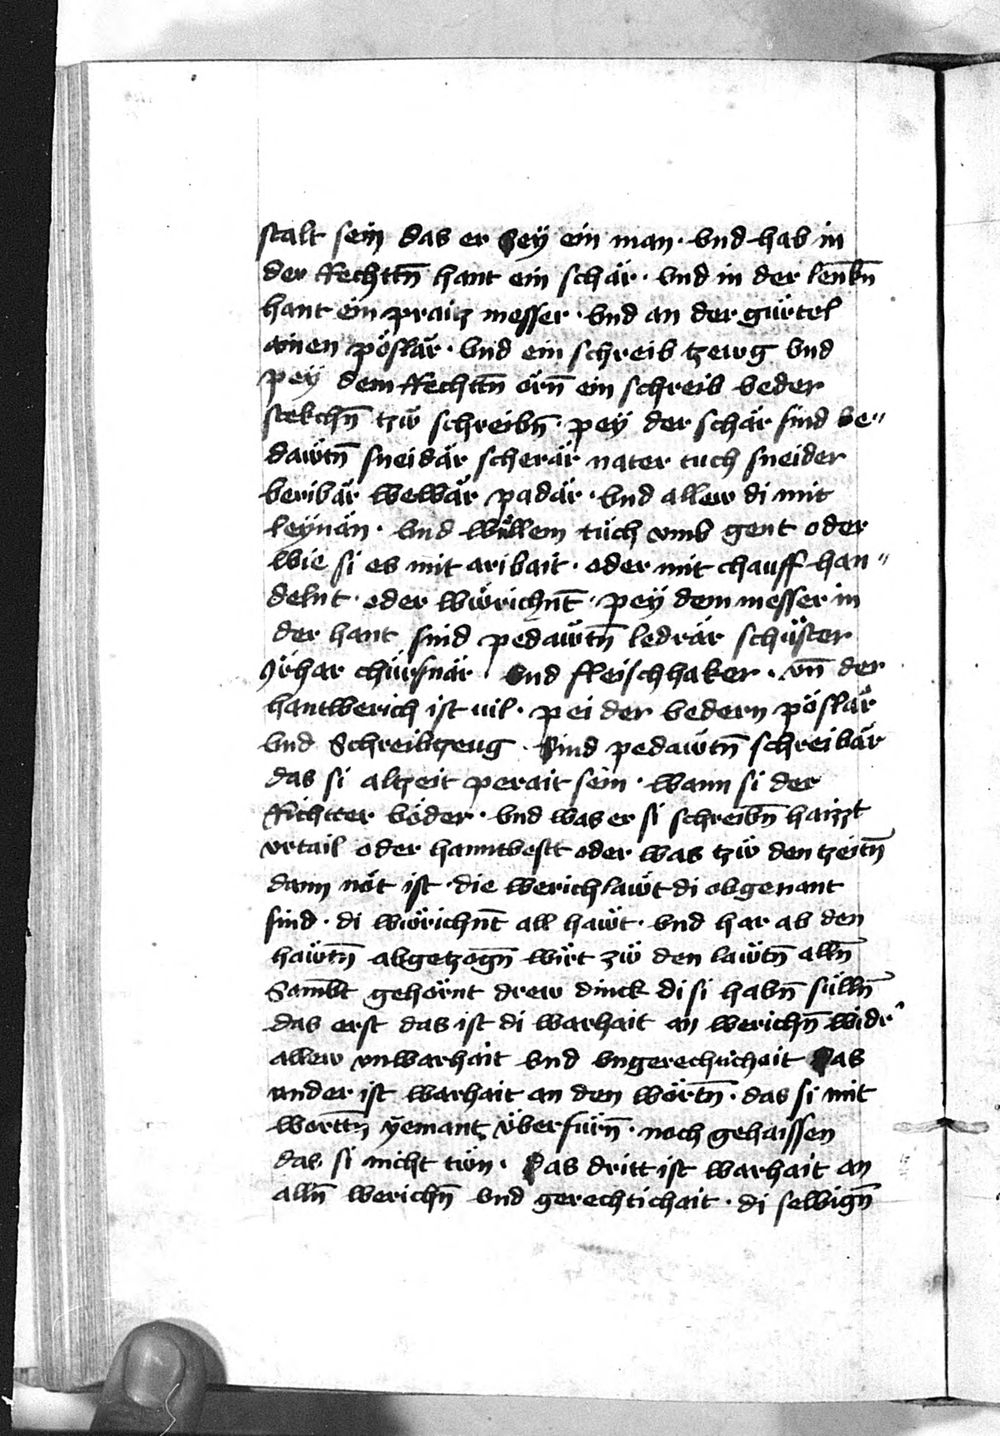 stalt sein das er Sey ein man · vnd hab in
der Rechttn̄ hant ein schär · vnd in der lenkn̄
hant ein praitz messer · vnd an der gürtel
ainen pöslär · vnd ein schreib tzewg vnd
pey dem Rechttn̄ örn̄ ein schreib veder
stekchn̄ tzw̎ schreibn̄ · pey der schär sind be〃
däwtn̄ sneidär scherär nater tuch sneider
veribär webbär padär · vnd allew di mit
leynän · vnd wüllem tüch vmb gent oder
wie si es mit aribait · oder mit chauff han〃
delnt · oder würichnt̄ · pey dem messer in
der hant sind pedäwtn̄ ledrär schüster
Irhar chürsnär · Vnd fleischhaker · vn̄ der
hantwerich ist uil · pei der vedern pöslär
vnd Schreibtzeug · Sind pedäwtn̄ schreibär
das si altzeit perait sein · wann si der
Richtter vöder · vnd was er si schreibn̄ haizzt
vrtail oder hanntvestt oder was tzw̎ den tzeitn̄
dann nöt ist · die werichläwt di obgenant
sind · di würichnt̄ all häwt · vnd har ab den
häwtn̄ abgetzogn̄ wirt zw̎ den läwtn̄ alln̄
Sambt gehörnt drew dinck di si habn̄ sülln̄
das erst das ist di warhait an werichn̄ widr
allew vnwarhait vnd vngerechtichait Das
ander ist warhait an den wörtn̄ · das si mit
worttn̄ yemantz vberfürn̄ · noch gehaissen
das si nicht tün · Das dritt ist warhait an
alln̄ werichn̄ vnd gerechtichait · di selbign̄